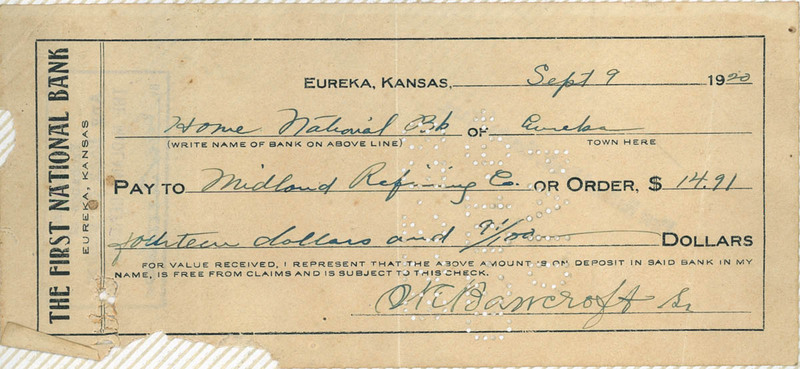 THE FIRST NATIONAL BANK
EUREKA, KANSAS
EUREKA, KANSAS, Sept 9 1920
Home National Bk OF Eureka
(WRITE NAME OF BANK ON ABOVE LINE) TOWN HERE
PAY TO Midland Refining Co. OR ORDER, $ 14.91
fourteen dollars and 91/100 DOLLARS
FOR VALUE RECEIVED, I REPRESENT THAT THE ABOVE AMOUNT IS ON DEPOSIT IN SAID BANK IN MY
NAME, IS FREE FROM CLAIMS AND IS SUBJECT TO THIS CHECK.
Bancroft